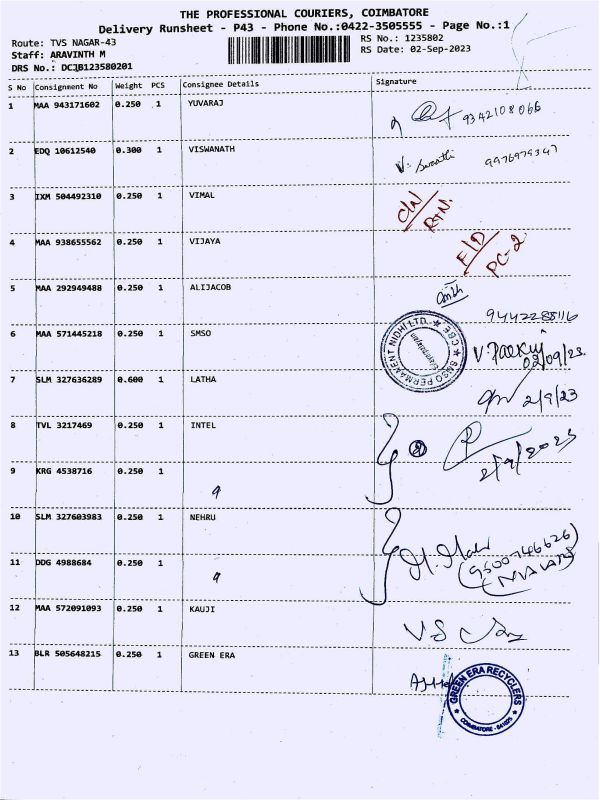 THE PROFESSIONAL COURIERS, COIMBATORE
Delivery Runsheet - P43 - Phone No.:0422-3505555 - Page No.:1
Route: TVS NAGAR-43
RS No.: 1235802
Staff: ARAVINTH M
RS Date: 02-Sep-2023
DRS No.: DCJB123580201
S No Consignment No Weight PCS Consignee Details Signature
1 MAA 943171602 0.250 1 YUVARAJ 9342108066
2 EDQ 10612540 0.300 1 VISWANATH 9976979347
3 IXM 504492310 0.250 1 VIMAL C/N RTN.
4 MAA 938655562 0.250 1 VIJAYA F/D PC-2
5 MAA 292949488 0.250 1 ALIJACOB 9442288116
6 MAA 571445218 0.250 1 SMSO 02/09/23
7 SLM 327636289 0.600 1 LATHA 2/9/23
8 TVL 3217469 0.250 1 INTEL 2/9/2023
9 KRG 4538716 0.250 1
10 SLM 327603983 0.250 1 NEHRU 9500746626
11 DDG 4988684 0.250 1
12 MAA 572091093 0.250 1 KAUJI
13 BLR 505648215 0.250 1 GREEN ERA
GREEN ERA RECYCLERS